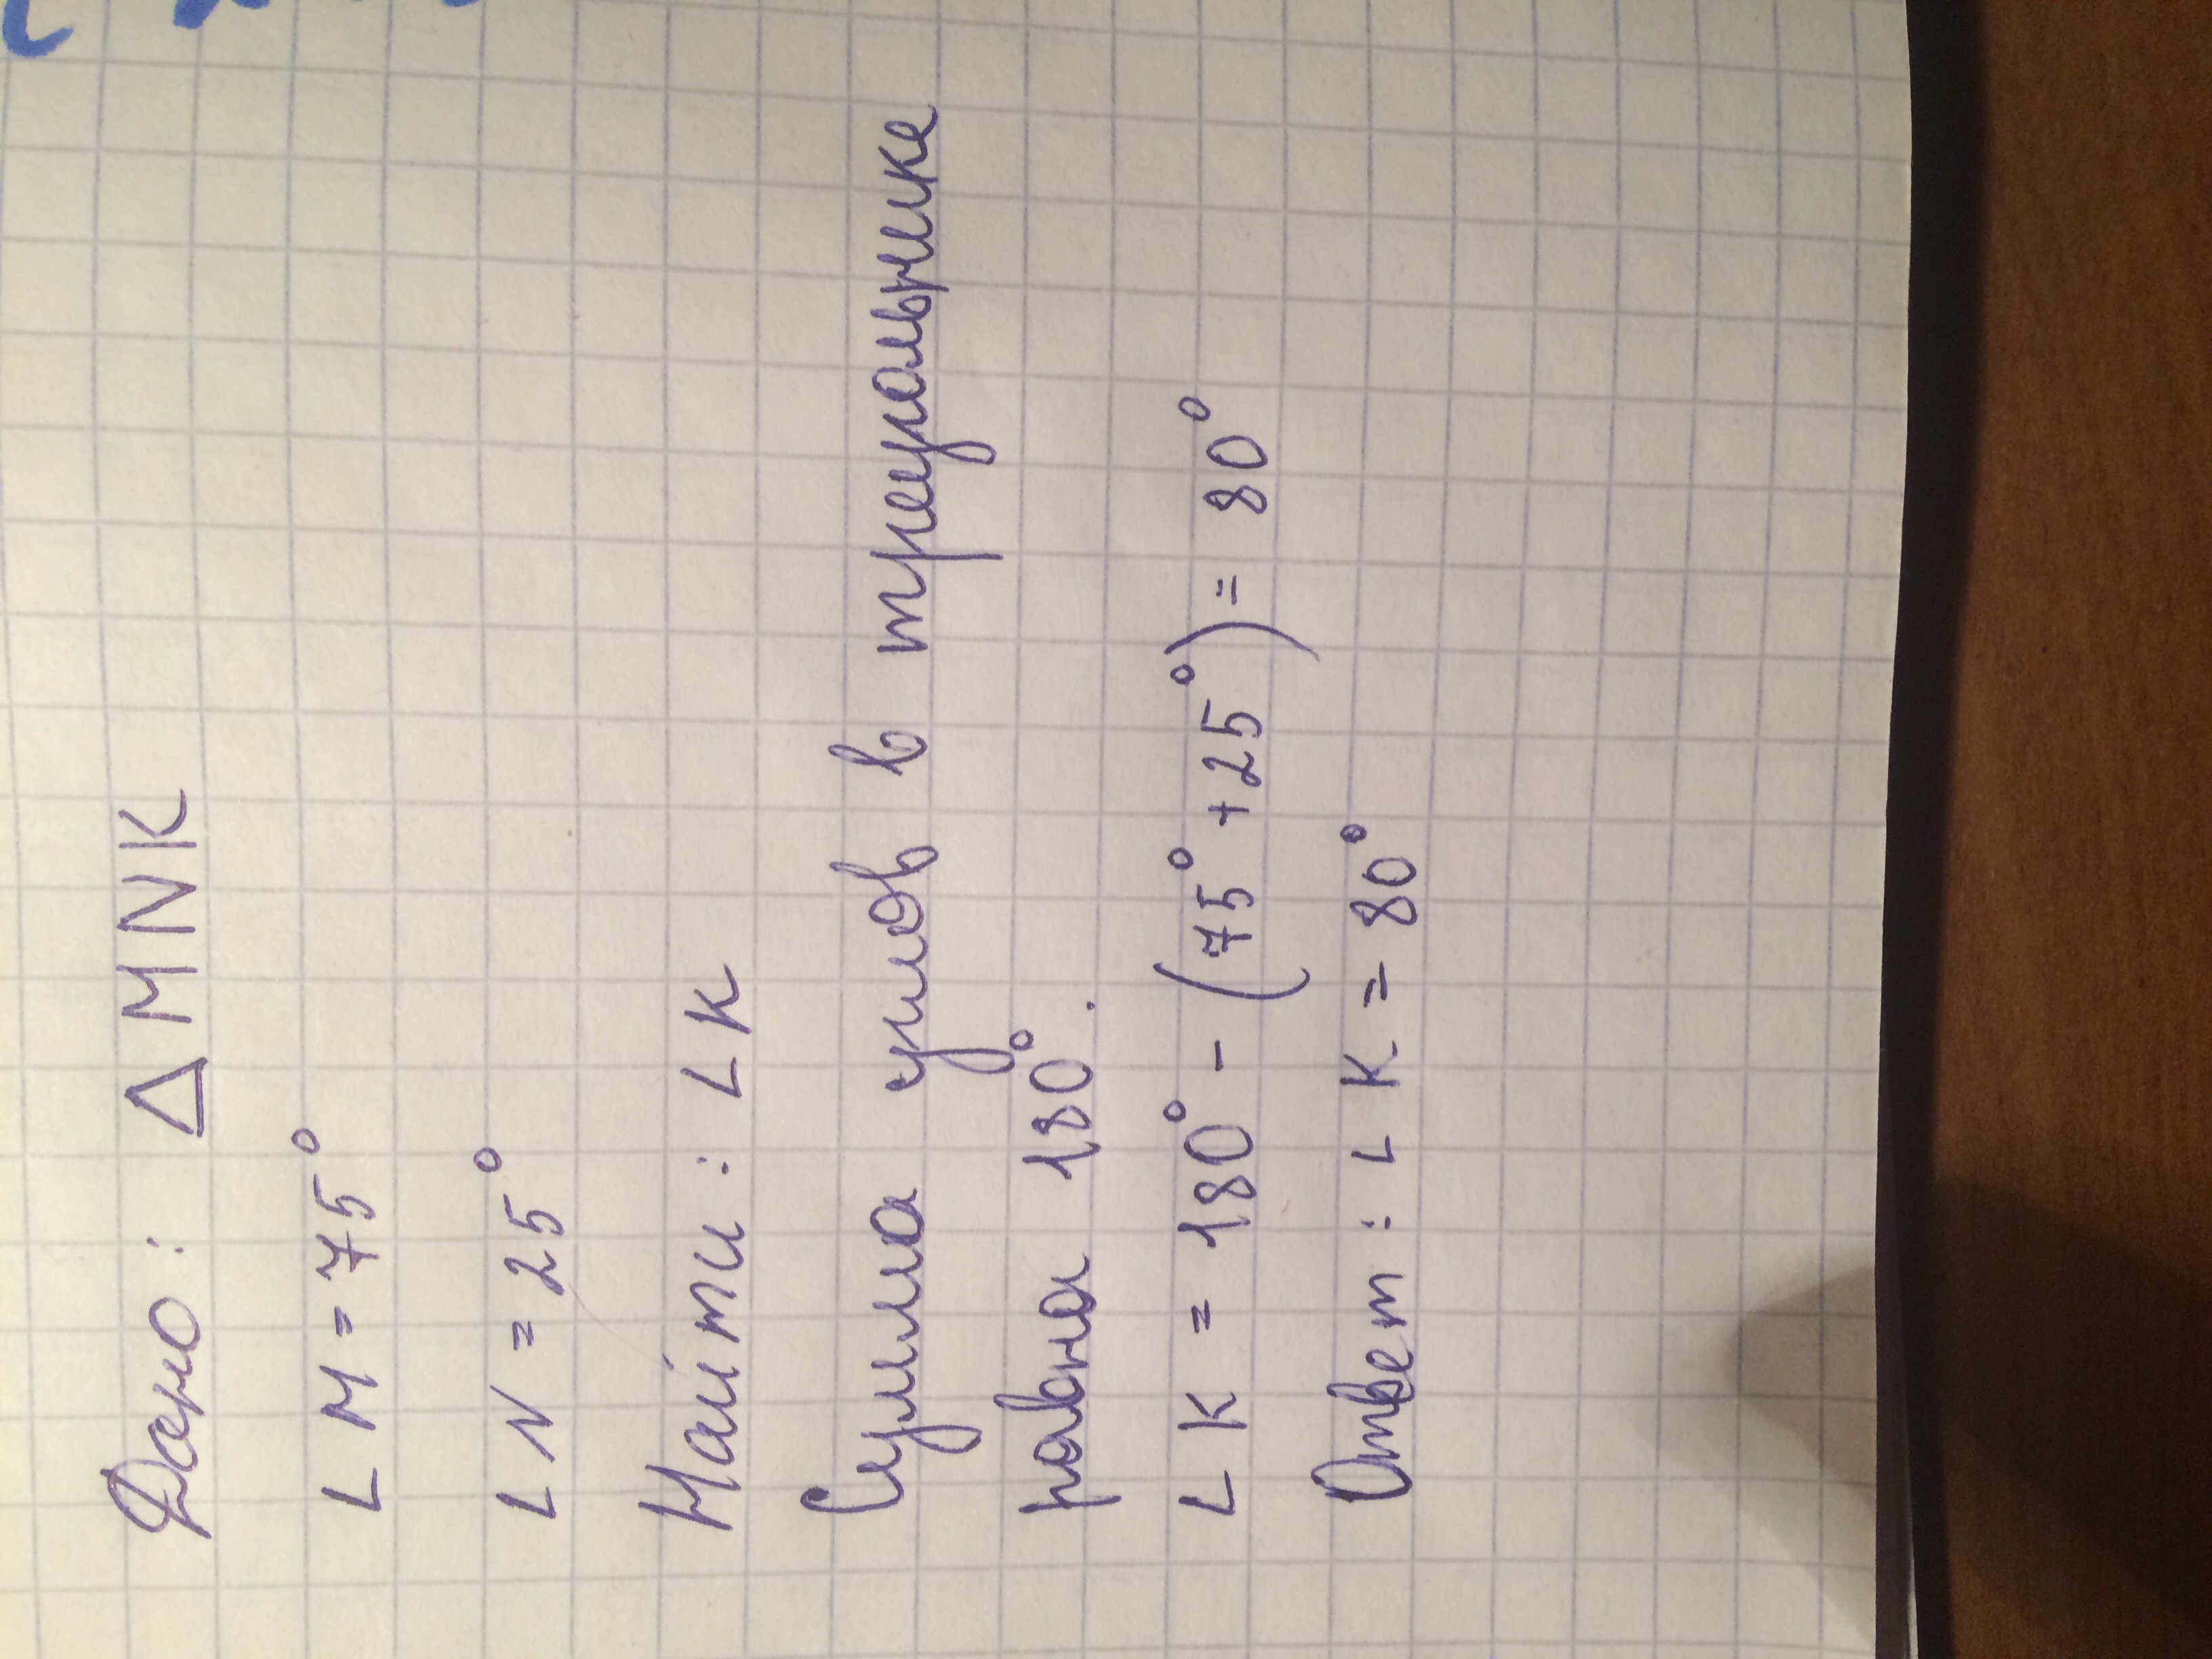 Дано: △MNK
∠M = 75°
∠N = 25°
Найти: ∠K
Сумма углов в треугольнике
равна 180°.
∠K = 180° - (75° + 25°) = 80°
Ответ: ∠K = 80°